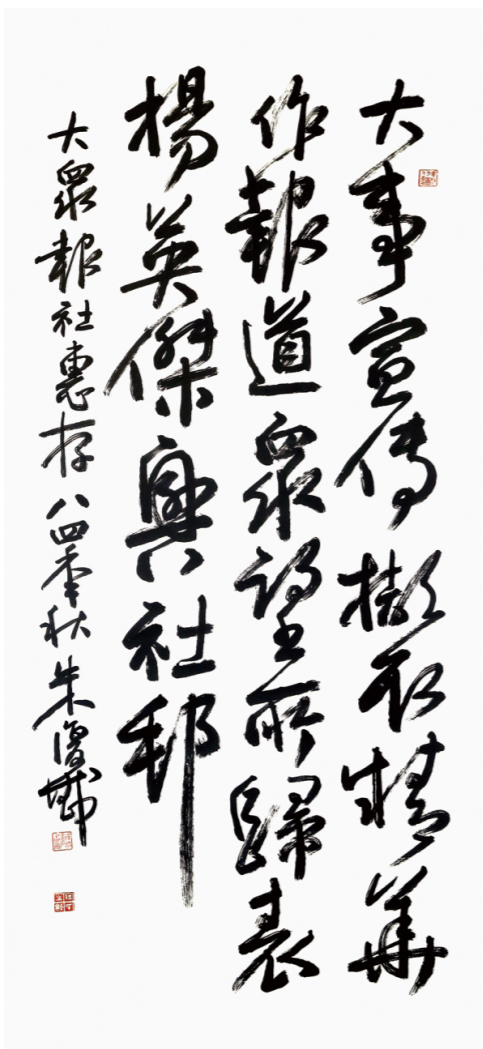 大事宣傳擷取精華
作報道衆望所歸表
揚英傑興社邦
大衆報社惠存八四年秋朱復戡